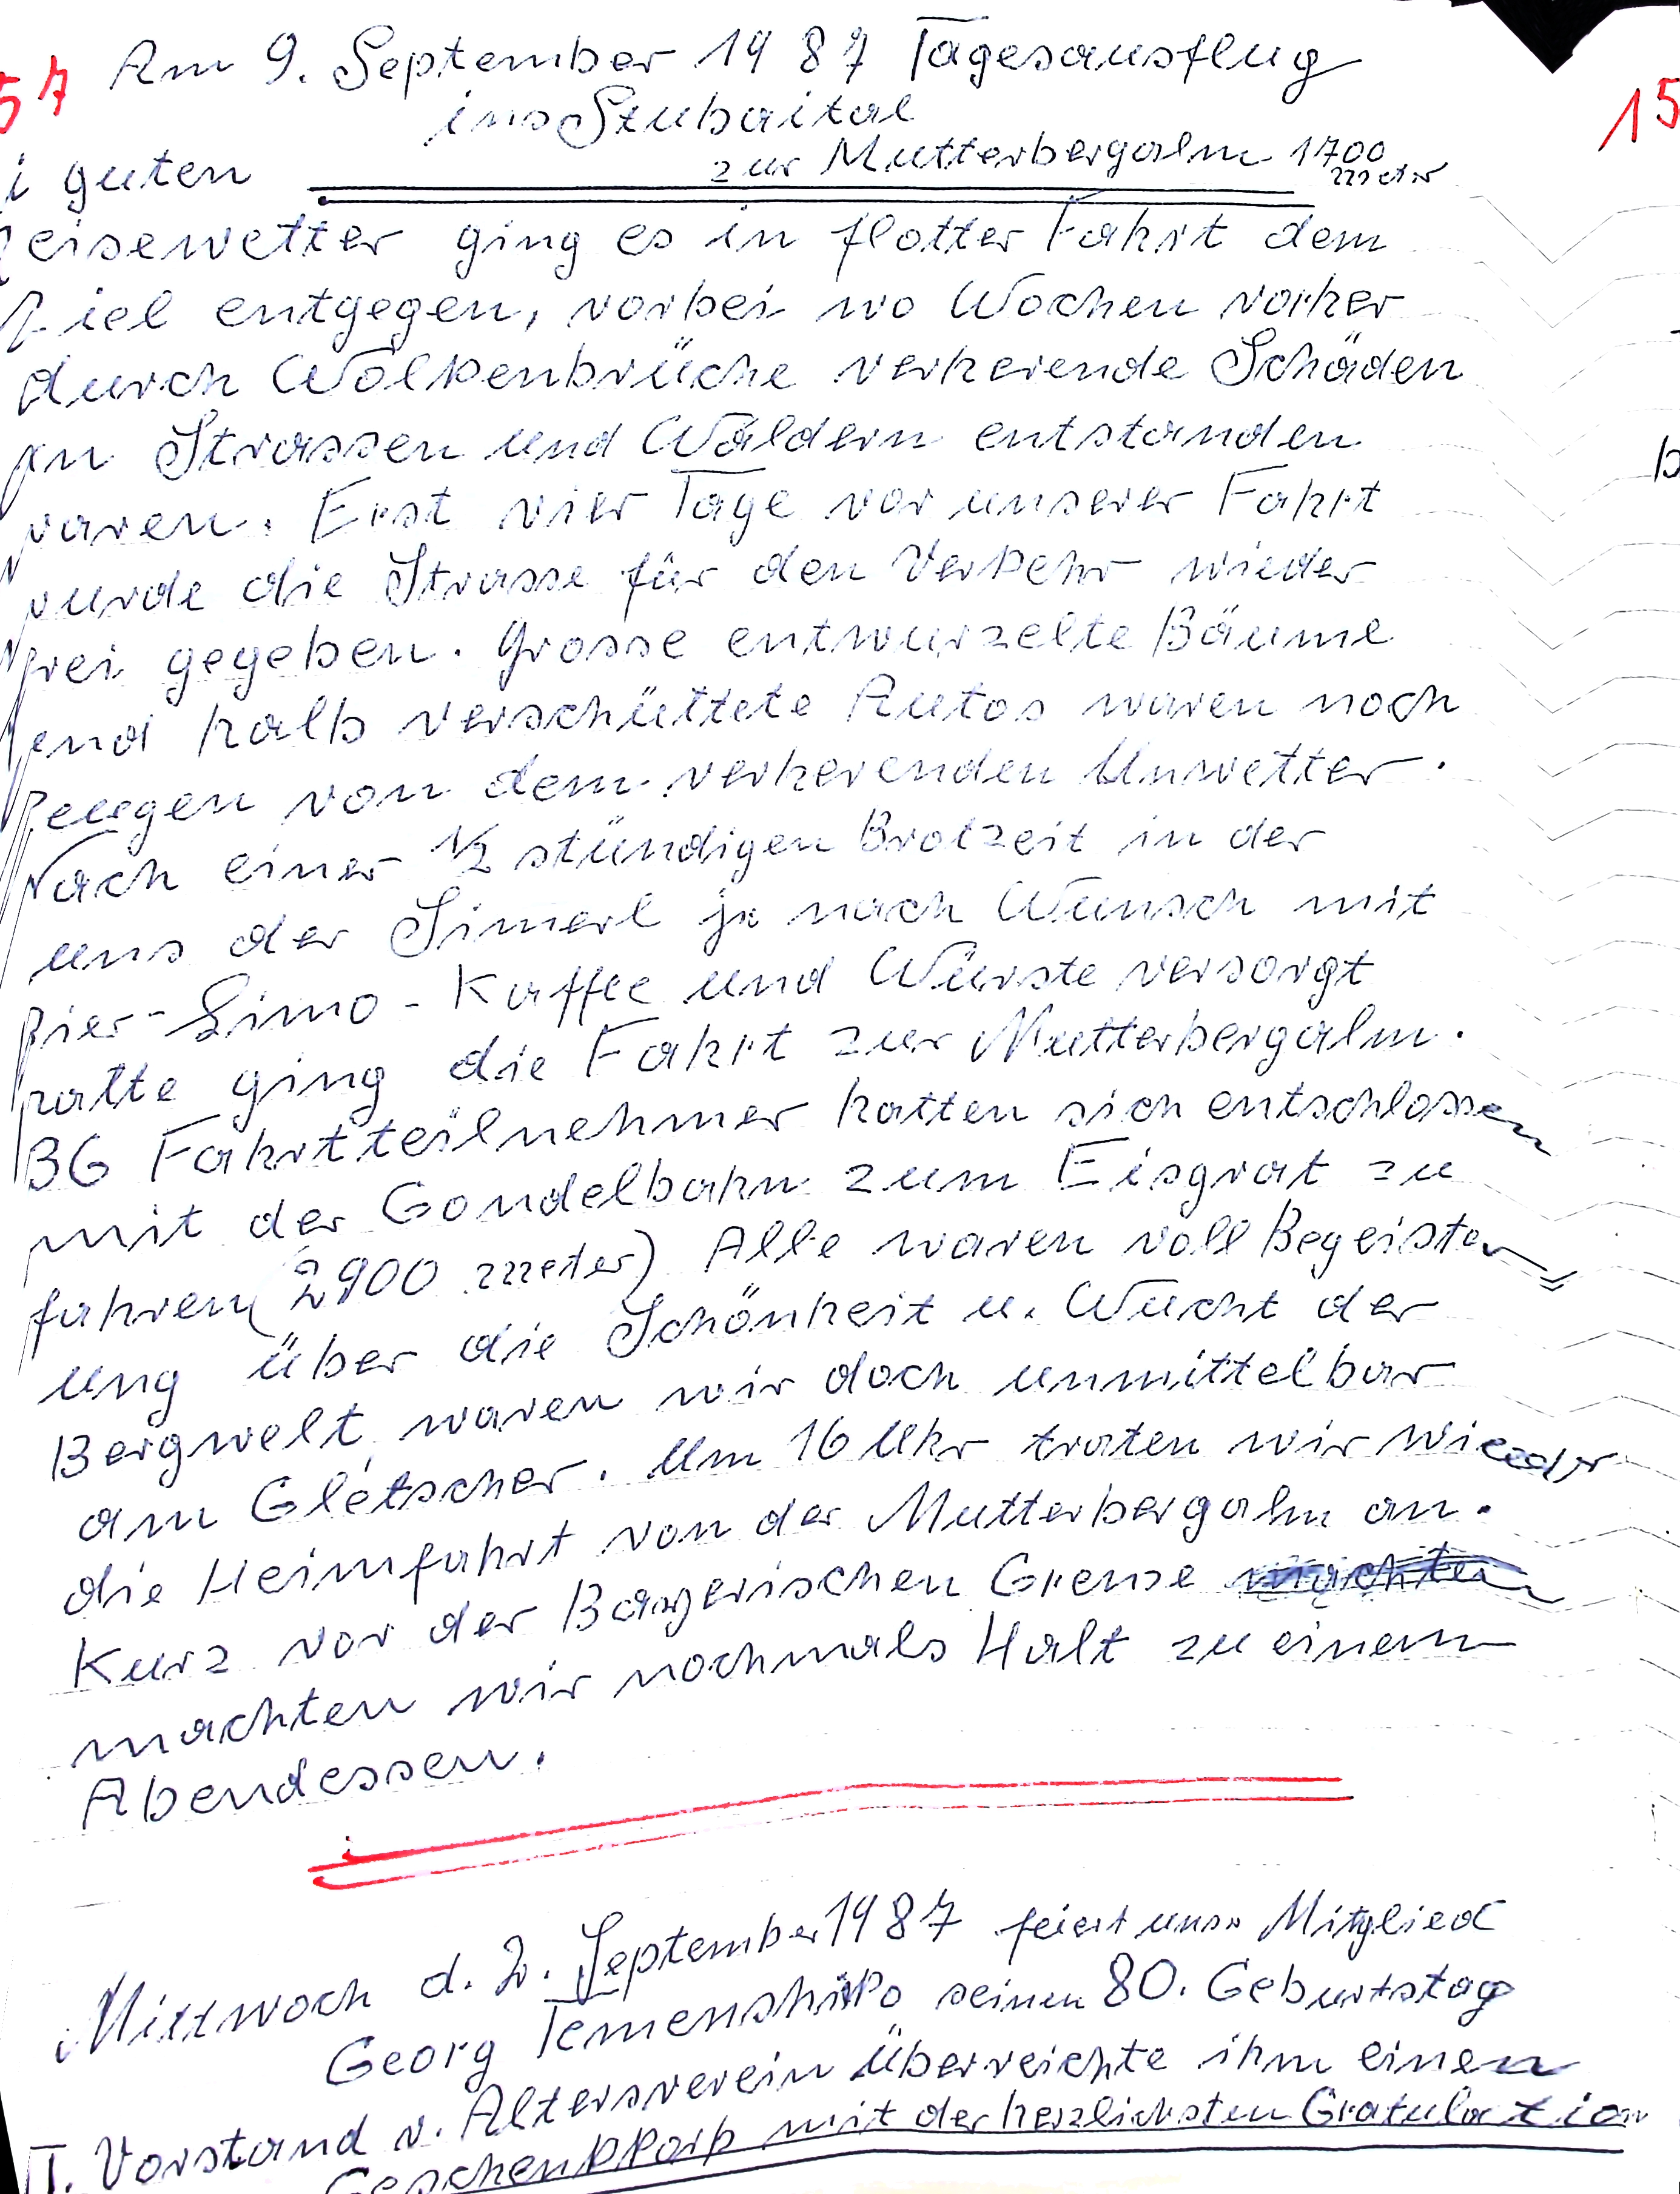 57 Am 9. September 1987 Tagesausflug 15
ins Stubaital
zur Mutterbergalm 1700 meter
i guten
eisewetter ging es in flotter Fahrt dem
Ziel entgegen, vorbei wo Wochen vorher
durch Wolkenbrüche verherende Schäden
an Strassen und Wäldern entstanden
waren. Erst vier Tage vor unserer Fahrt
wurde die Strasse für den Verkehr wieder
frei gegeben. Grosse entwurzelte Bäume
und halb verschüttete Autos waren noch
Zeugen von dem verherenden Unwetter.
Nach einer ½ stündigen Brotzeit in der
uns der Simerl je nach Wunsch mit
Bier - Limo - Kaffee und Würste versorgt
hatte ging die Fahrt zur Mutterbergalm.
36 Fahrtteilnehmer hatten sich entschlossen
mit der Gondelbahn zum Eisgrat zu
fahren (2900 meter) Alle waren voll Begeister=
ung über die Schönheit u. Wucht der
Bergwelt, waren wir doch unmittelbar
am Gletscher. Um 16 Uhr traten wir wieder
die Heimfahrt von der Mutterbergalm an.
Kurz vor der Bayerischen Grenze machten
machten wir nochmals Halt zu einem
Abendessen.
Mittwoch d. 2. September 1987 feiert unser Mitglied
Georg seinen 80. Geburtstag
II. Vorstand v. Altersverein überreichte ihm einen
Geschenkkorb mit der herzlichsten Gratulation